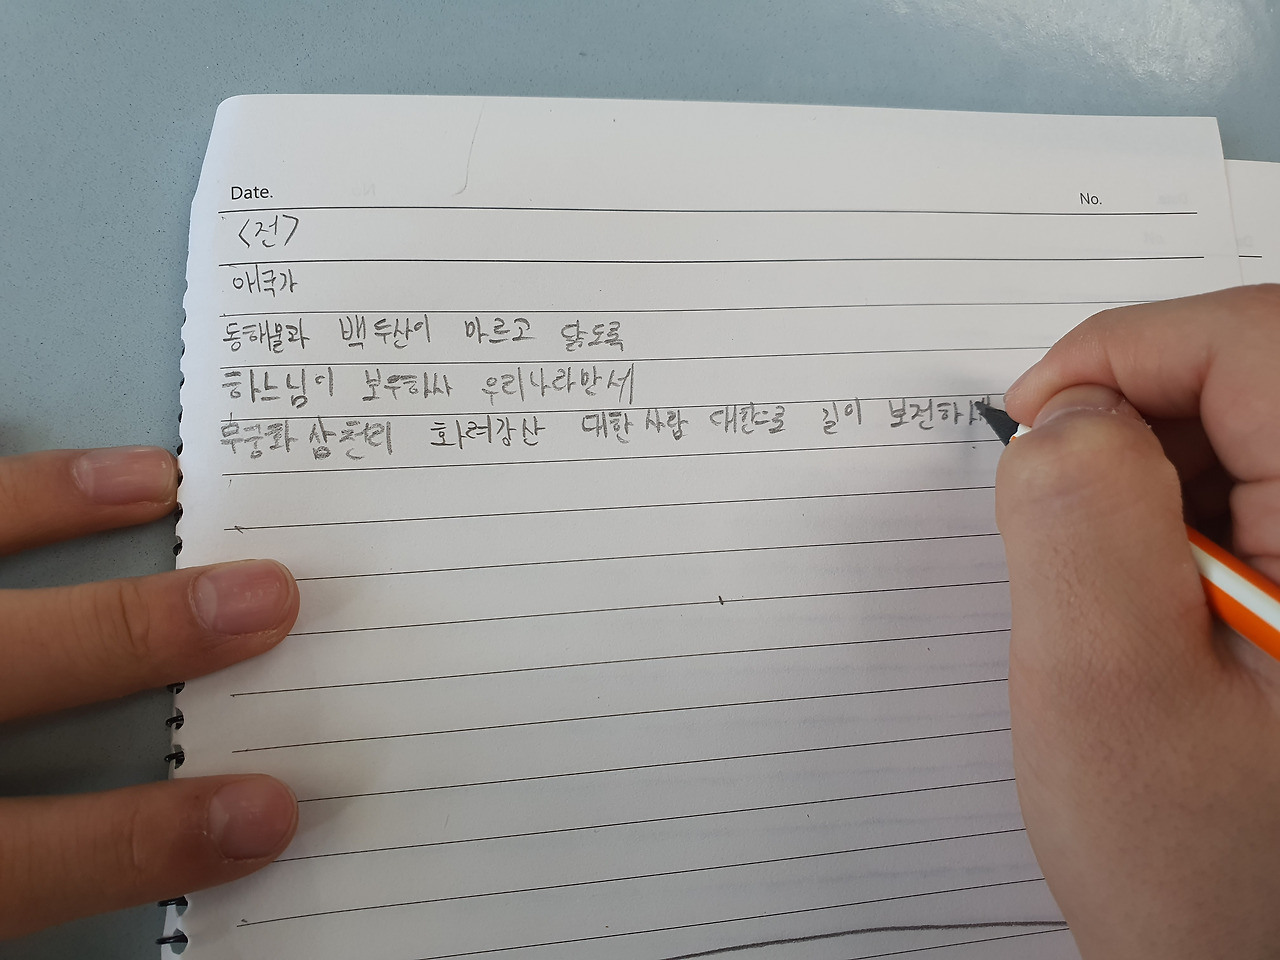 Date. No.
<전>
애국가
동해물과 백두산이 마르고 닳도록
하느님이 보우하사 우리나라만세
무궁화 삼천리 화려강산 대한사람 대한으로 길이 보전하세